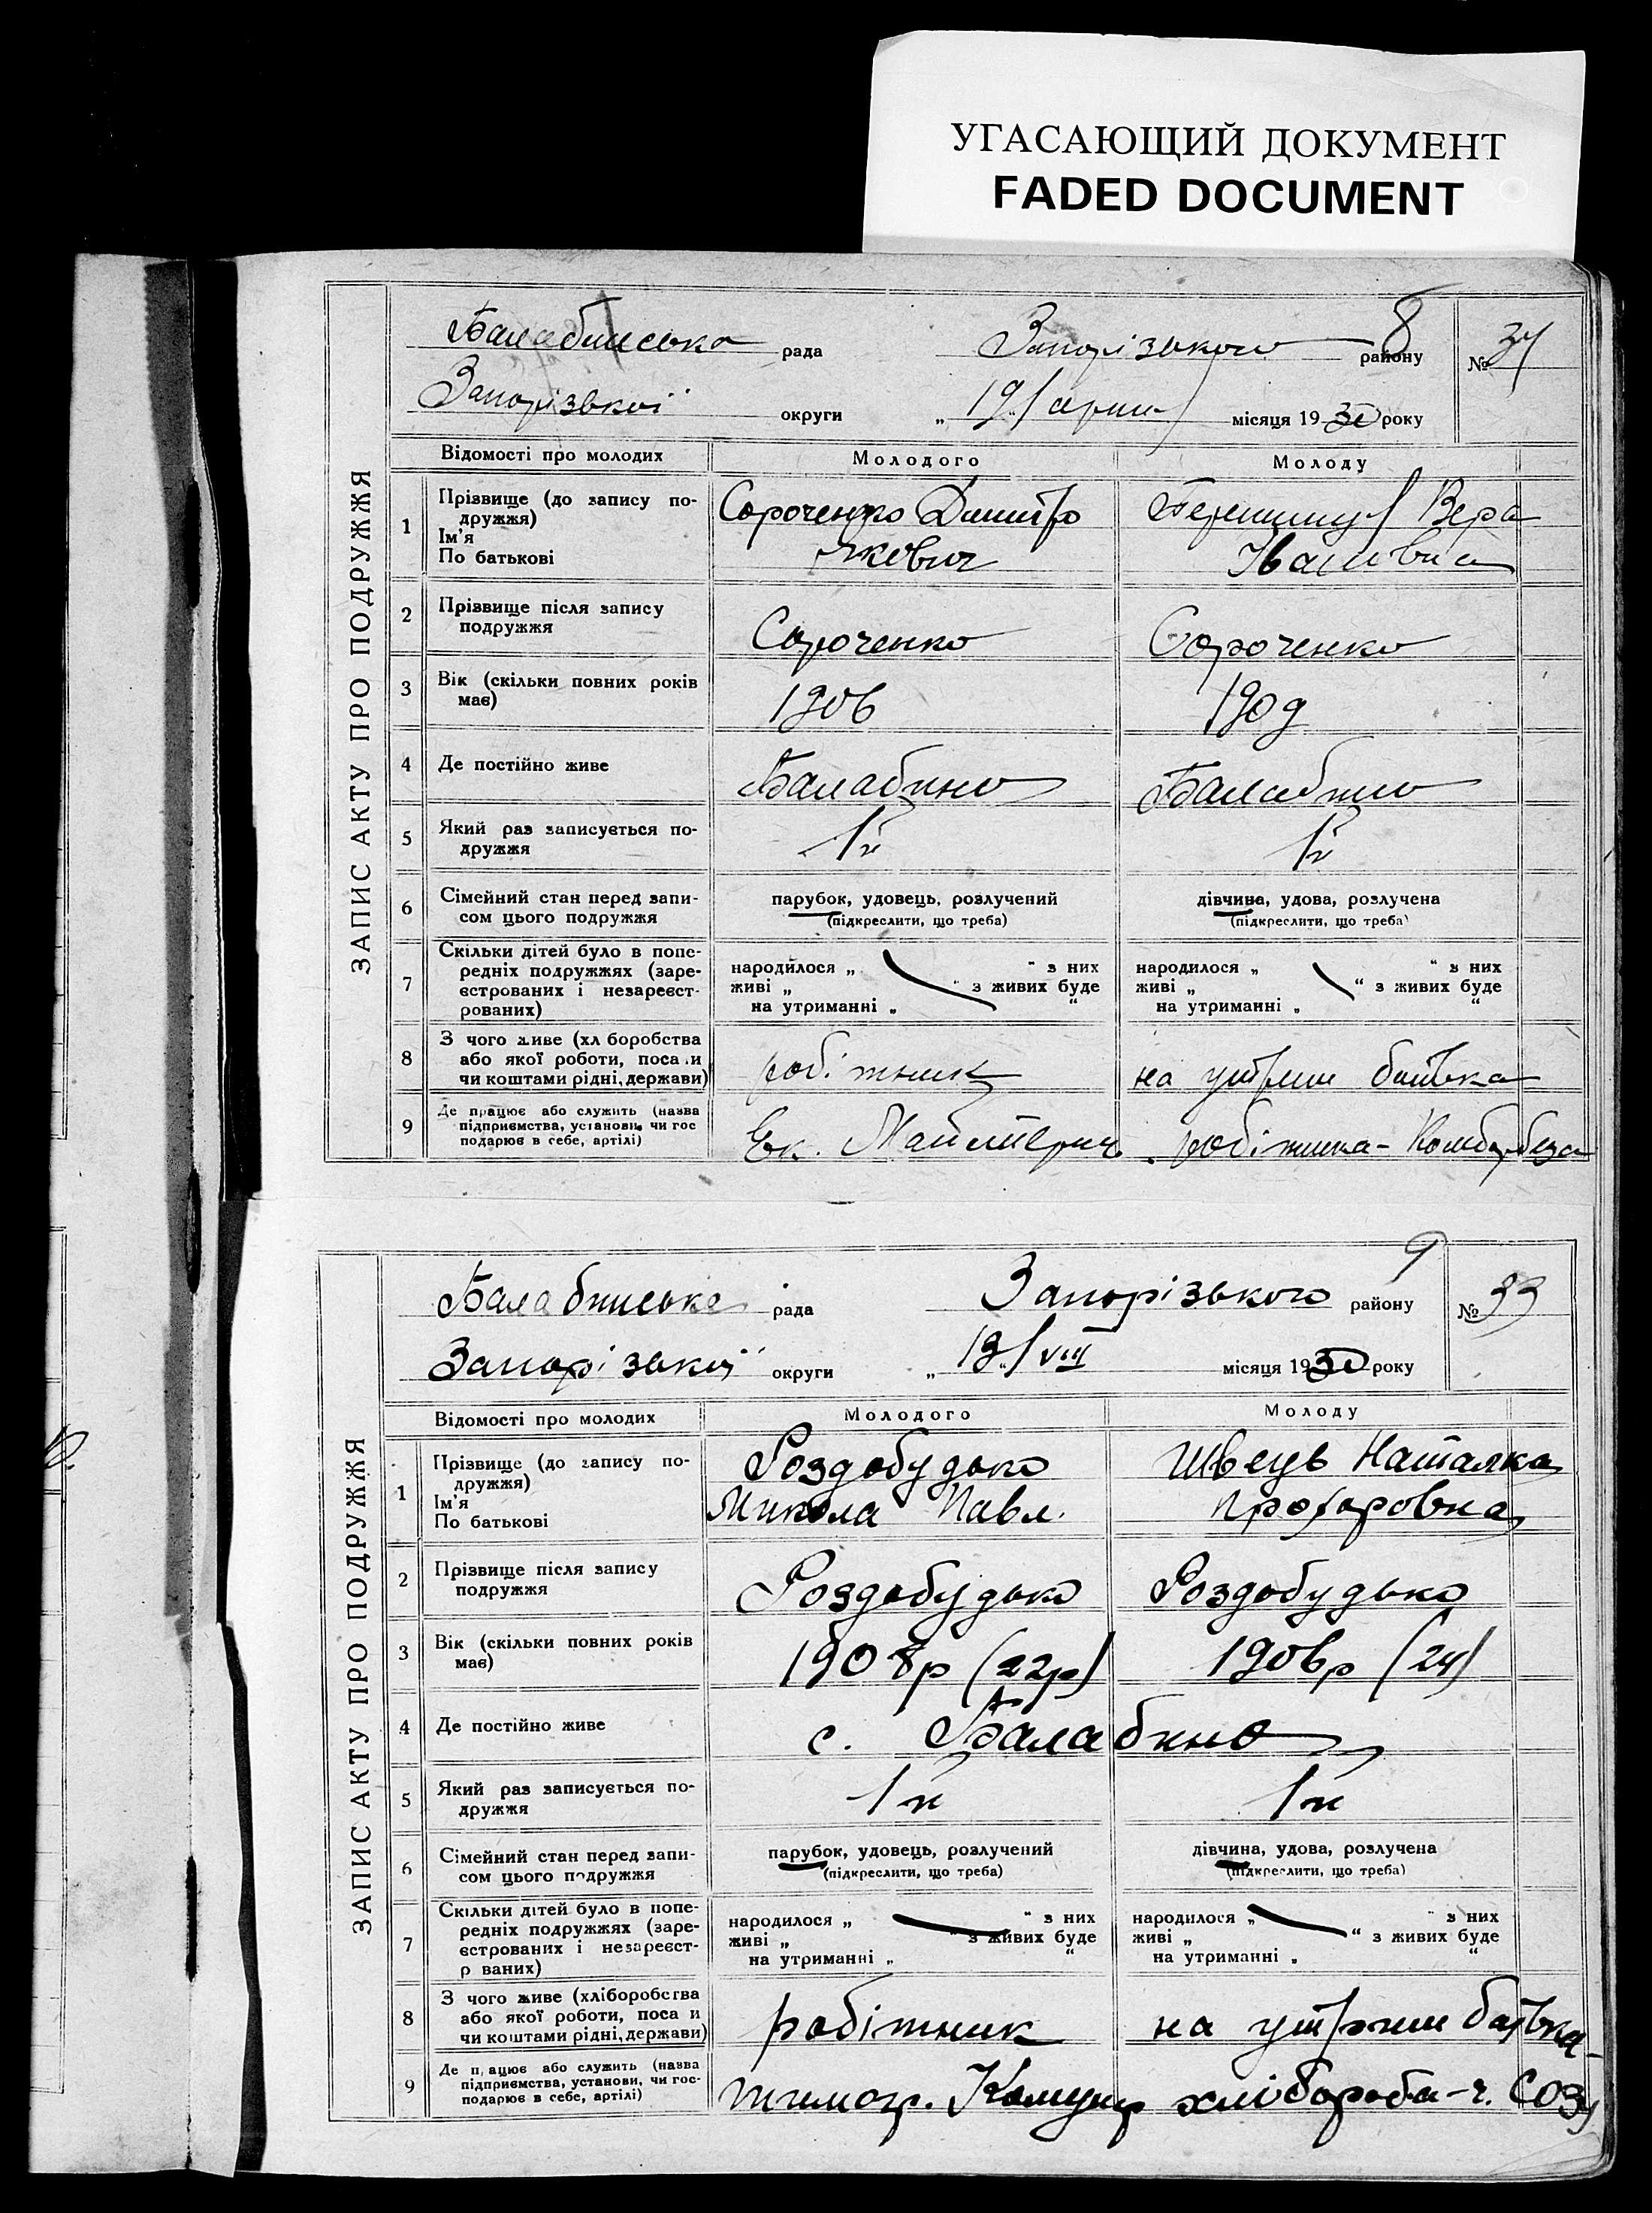 УГАСАЮЩИЙ ДОКУМЕНТ
FADED DOCUMENT
ЗАПИС АКТУ ПРО ПОДРУЖЖЯ
8
Балабинська рада Запорізького району №
Запорізької округи „ 19/серпня місяця 1930 року
Відомості про молодих Молодого Молоду
1 Прізвище (до запису по-
дружжя)
Ім'я
По батькові
Сороченко Дмитро
Якович
Вера
Івановна
2 Прізвище після запису
подружжя
Сороченко Сороченко
3 Вік (скільки повних років
має)
1906 1909
4 Де постійно живе Балабино Балабино
5 Який раз записується по-
дружжя
1й 1й
6 Сімейний стан перед запи-
сом цього подружжя
парубок, удовець, розлучений дівчина, удова, розлучена
(підкреслити, що треба) (підкреслити, що треба)
7 Скільки дітей було в попе-
редніх подружжях (заре-
єстрованих і незареєст-
рованих)
народилося „ “ з них народилося „ “ з них
живі „ “ з живих буде живі „ “ з живих буде
на утриманні „ “ на утриманні „ “
8 З чого живе (хл боробства
або якої роботи, поса и
чи коштами рідні, держави)
робітник на утрим батька
9 Де працює або служить (назва
підприємства, установи, чи гос
подарює в себе, артілі)
робітника-
ЗАПИС АКТУ ПРО ПОДРУЖЖЯ
9
Балабинська рада Запорізького району № 33
Запорізької округи „ 19/VIII місяця 1930 року
Відомості про молодих Молодого Молоду
1 Прізвище (до запису по-
дружжя)
Ім'я
По батькові
Роздобудько
Микола Павл.
Швець Наталка
Прохоровна
2 Прізвище після запису
подружжя
Роздобудько Роздобудько
3 Вік (скільки повних років
має)
1908р (22р) 1906р (24)
4 Де постійно живе с. Балабино
5 Який раз записується по-
дружжя
1й 1й
6 Сімейний стан перед запи-
сом цього подружжя
парубок, удовець, розлучений дівчина, удова, розлучена
(підкреслити, що треба) (підкреслити, що треба)
7 Скільки дітей було в попе-
редніх подружжях (заре-
єстрованих і незареєст-
р ваних)
народилося „ “ з них народилося „ “ з них
живі „ “ з живих буде живі „ “ з живих буде
на утриманні „ “ на утриманні „ “
8 З чого живе (хліборобства
або якої роботи, поса и
чи коштами рідні, держави)
робітник на утрим батька-
9 Де п ацює або служить (назва
підприємства, установи, чи гос-
подарює в себе, артілі)
хлібороба-ч. СОЗу